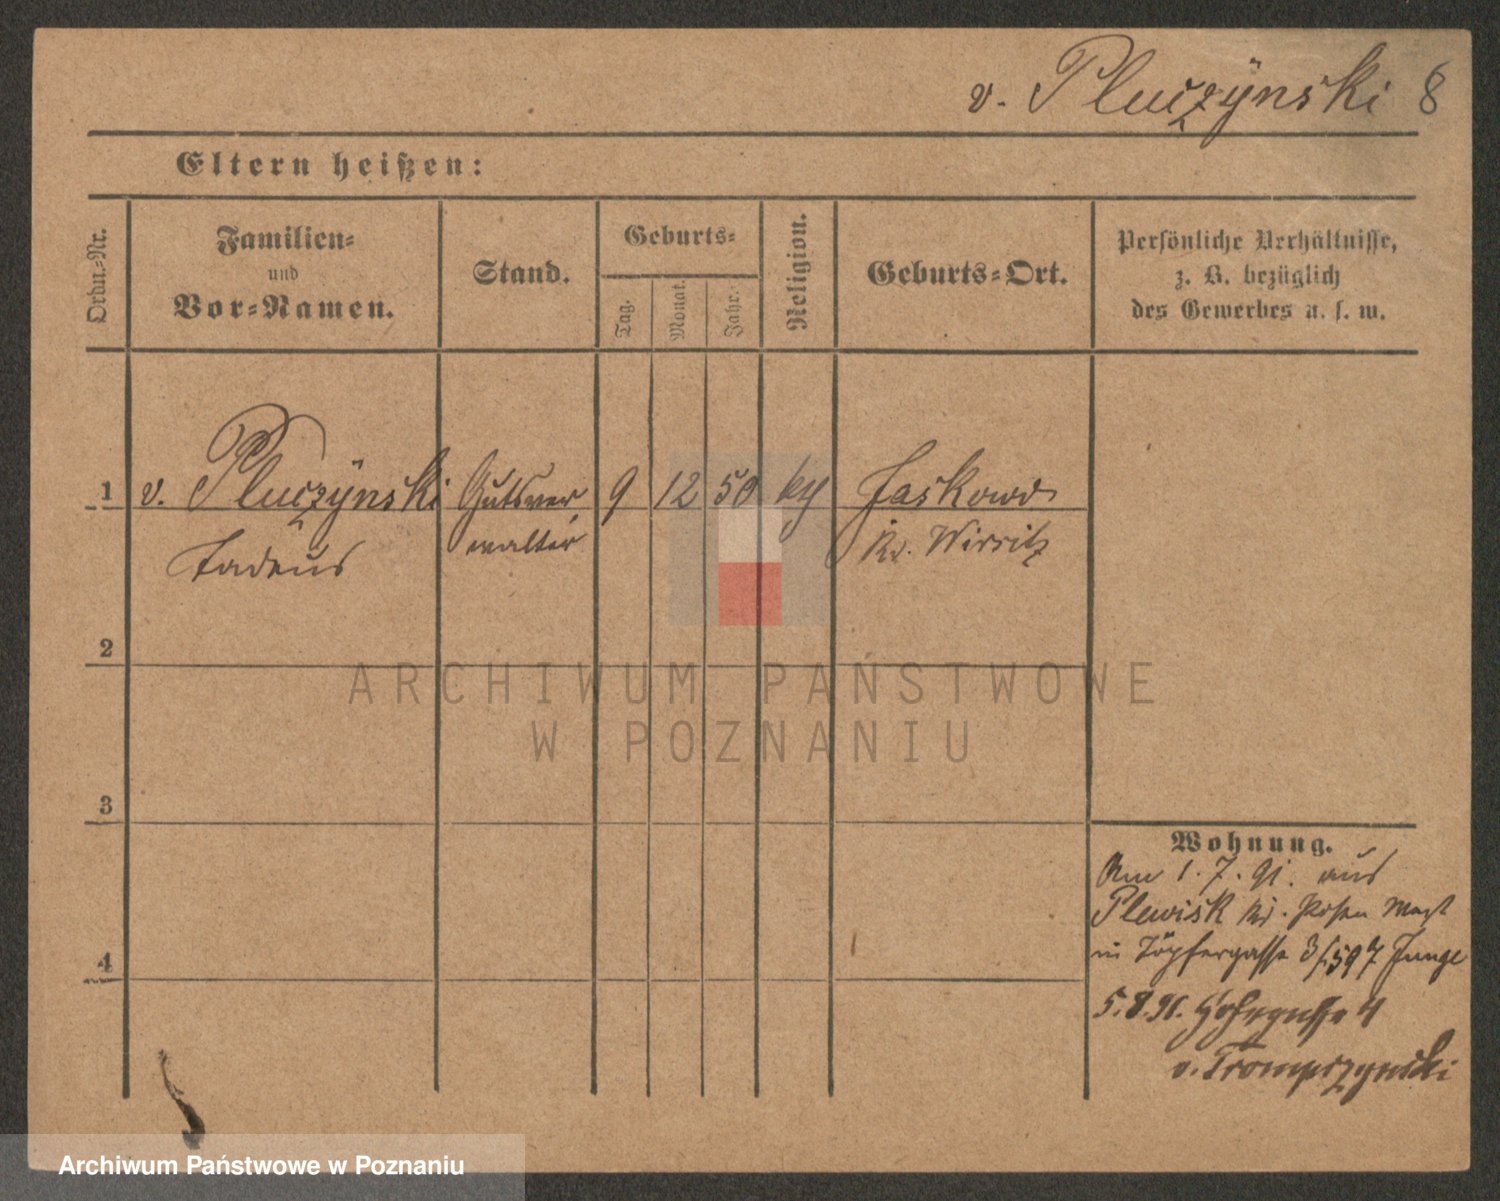 v. Pluczÿnski 8
Eltern heißen:
Ordn.-Nr.
Familien-
und
Vor-Namen.
Stand.
Geburts-
Tag.
Monat.
Jahr.
Religion.
Geburts-Ort.
Persönliche Verhältnisse,
z. B. bezüglich
des Gewerbes u. s. w.
1 v. Pluczÿnski Gutsver 9 12 50 Jaskowo
Tadeus walter Kr. Wirsitz
2
3
4
Wohnung.
Am 1. 7. 91. aus
Plewisk Kr. Posen West
in Töpfergasse 3/ 597 Junge
5.8.91. 4
v. Trompczynski
ARCHIWUM PAŃSTWOWE
W POZNANIU
Archiwum Państwowe w Poznaniu